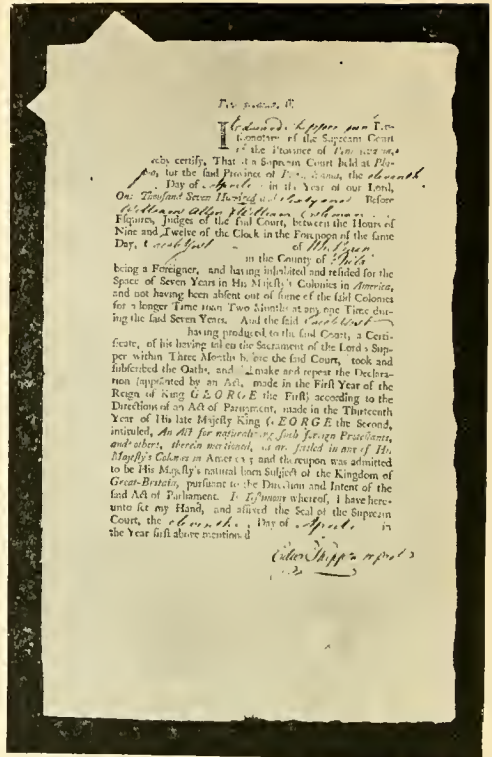 I Edward Shippen jun Pro-
thonotary of the Supream Court
of the Province of
eby certify, That at a Supream Court held at Phi-
for the said Province of the eleventh
Day of Aprile in the Year of our Lord,
One Thousand Seven Hundred and Sixty one Before
William Allen & William Coleman
Esquires, Judges of the said Court, between the Hours of
Nine and Twelve of the Clock in the Forenoon of the same
Day, Jacob Yost of
in the County of Phila
being a Foreigner, and having inhabited and resided for the
Space of Seven Years in His Majesty's Colonies in America,
and not having been absent out of some of the said Colonies
for a longer Time than Two Months at any one Time dur-
ing the said Seven Years. And the said Jacob Yost
having produced to the said Court, a Certi-
ficate, of his having taken the Sacrament of the Lord's Sup-
per within Three Months before the said Court, took and
subscribed the Oaths, and did make and repeat the Declara-
tion (appointed by an Act, made in the First Year of the
Reign of King GEORGE the First) according to the
Directions of an Act of Parliament, made in the Thirteenth
Year of His late Majesty King GEORGE the Second,
intituled, An Act for naturalizing such foreign Protestants,
and others, therein mentioned, as are settled in any of His
Majesty's Colonies in America; and thereupon was admitted
to be His Majesty's natural born Subject of the Kingdom of
Great-Britain, pursuant to the Direction and Intent of the
said Act of Parliament. In Testimony whereof, I have here-
unto set my Hand, and affixed the Seal of the Supream
Court, the eleventh Day of Aprile in
the Year first above mentioned
Edward Shippen